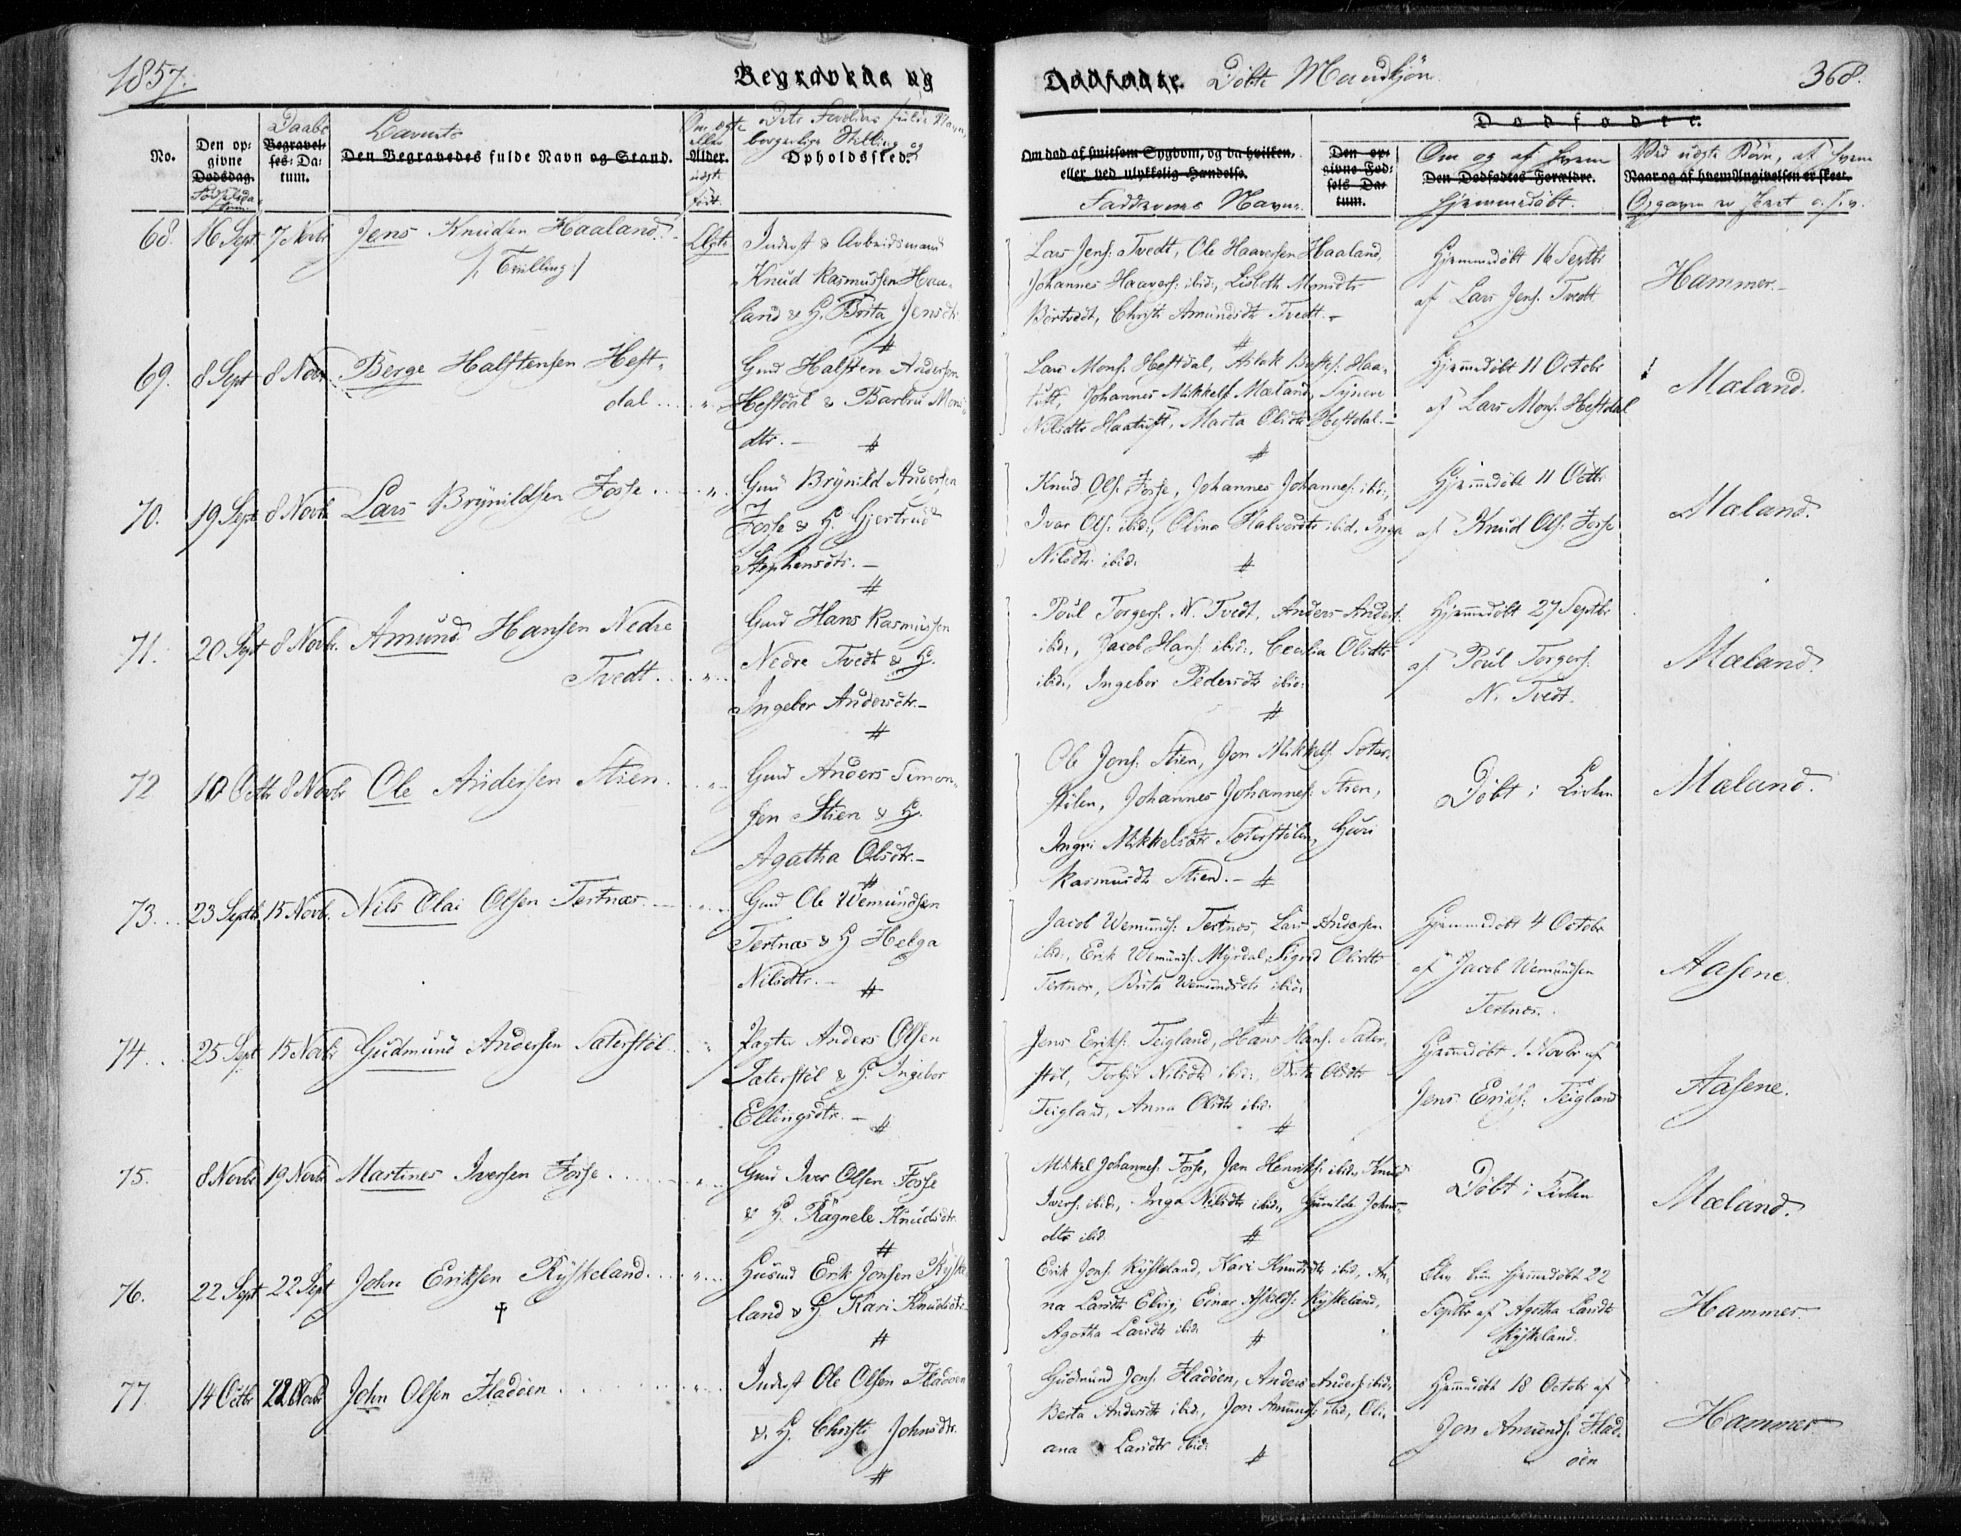 1857.
Begravede og
Dødfødte. Døbte Mandkjøn
368.
No.
Den op-
givne
Dødsdag.
Daabs
Begravel-
ses-Da-
tum.
Barnets
Den Begravedes fulde Navn og Stand.
Om ægte
eller
Alder.
uægte
født.
borgerlige Stilling og
Opholdssted.
Om død af smitsom Sygdom, og da hvilken,
eller ved ulykkelig Hændelse.
Faddernes Navne.
Dødfødte.
Den op-
givne Fød-
sels-Da-
tum.
Om og af hvem
Den Dødfødtes Forældre.
hjemmedøbt.
Ved uægte Børn, af hvem
Naar og af hvem Angivelsen er skeet.
Opgaven er skeet
68. 16 Sept. 7 Novbr Jens Knudsen Haaland. Ægte
/: Tvilling :/
Inderst & Arbeidsmand
Knud Rasmussen Haa-
land & H. Brita Jensdtr.
#
Lars Jens. Tvedt, Ole Haaversen Haaland,
Johannes Haavers. ibid., Lisbeth Monsdtr
Børtvedt, Christi Amundsdtr Tvedt. -
#
Hjemmedøbt 16 Septbr
af Lars Jens. Tvedt
Hammer.
69. 8 Sept 8 Novbr Børge Halstensen Heft-
dal . . . "
Gmd Halsten Andersen
Heftdal & Barbru Mons-
dtr. - #
Lars Mons. Heftdal, Aslak Haa-
tuft, Johannes Mikkels. Mæland, Synneve
Nilsdtr Haatuft, Marta Olsdtr Heftdal. -
#
Hjemmedøbt 11 Octobr
af Lars Mons. Heftdal
Mæland.
70. 19 Sept 8 Novbr Lars Brynildsen Fosse . . . "
Gmd Brynild Andersen
Fosse & H. Gjertrud
Stephensdtr. -
#
Knud Ols. Fosse, Johannes Johannes. ibid.,
Ivar Ols. ibid., Olina Halvordtr ibid, Inga
Nilsdtr ibid. #
Hjemmedøbt 11 Octbr
af Knud Ols. Fosse
Mæland.
71. 20 Sept 8 Novbr. Amund Hansen Nedre
Tvedt . . . "
Gmd Hans Rasmussen
Nedre Tvedt & H.
Ingebor Andersdtr. -
#
Poul Torgers. N. Tvedt, Anders Anders.
ibid., Jacob Hans. ibid., Cecilia Olsdtr
ibid., Ingebor Pedersdtr ibid.
#
Hjemmedøbt 27 Septbr
af Poul Torgers.
N. Tvedt.
Mæland.
72 10 Octbr 8 Novbr Ole Andersen Stien. . . "
Gmd Anders Simon-
sen Stien & H.
Agatha Olsdtr. -
#
Ole Jons. Stien, Jon Mikkels. Sæter-
stølen, Johannes Johannes. Stien,
Ingri Mikkelsdtr Sæterstølen, Guri
Rasmusdtr Stien. - #
Døbt i Kirken
Mæland.
73. . . 23 Septbr 15 Novbr. Nils Olai Olsen Tertnæs . . . "
Gmd Ole Wemundsen
Tertnæs & H Helga
Nilsdtr. - #
Jacob Wemunds. Tertnæs, Lars Andersen
ibid., Erik Wemunds. Myrdal, Sigrid Olsdtr
Tertnæs, Brita Wemundsdtr ibid.
#
Hjemmedøbt 4 Octobr
af Jacob Wemundsen
Tertnæs.
Aasene.
74. . . 25 Sept 15 Novbr Gudmund Andersen Sæterstøl . . "
Pagter Anders Olsen
Sæterstøl & H. Ingebor
Ellingsdtr. - #
Jens Eriks. Teigland, Hans Hans. Sæter-
støl, Nilsdtr ibid., Brita Olsdtr
Teigland, Anna Olsdtr ibid.
#
Hjemmedøbt 1 Novbr af
Jens Eriks. Teigland
Aasene.
75. 8 Novbr 19 Novbr Martines Iversen Fosse . . . "
Gmd Iver Olsen Fosse
& H. Ragnele Knudsdtr
#
Mikkel Johannes. Fosse, Jan Henriks. ibid, Knud
Ivers. ibid., Inga Nilsdtr ibid, Gunilde Johns-
dtr ibid. #
Døbt i Kirken
Mæland.
76. 22 Sept 22 Sept John Eriksen Rysteland. . . "
†
Husmd Erik Jonsen Ryste-
land & H. Kari Knudsdtr
#
Erik Jons. Rysteland, Kari Knudsdtr ibid, An-
na Larsdtr Elvig, Einar Askilds. Rysteland,
Agatha Larsdtr ibid #
Blev kun hjemmedøbt 22
Septbr af Agatha Larsdtr
Rysteland.
Hammer.
77. 14 Octbr 22 Novbr John Olsen Fladøen . . . "
Inderst Ole Olsen Fladøen
& H. Christi Johnsdtr.
#
Gudmund Jons. Fladøen, Anders Anders. ibid.,
Berta Andersdtr ibid., Jon Amunds. ibid, Oli-
ana Larsdtr ibid. #
Hjemmedøbt 18 Octobr af
Jon Amunds. Flad-
øen
Hammer